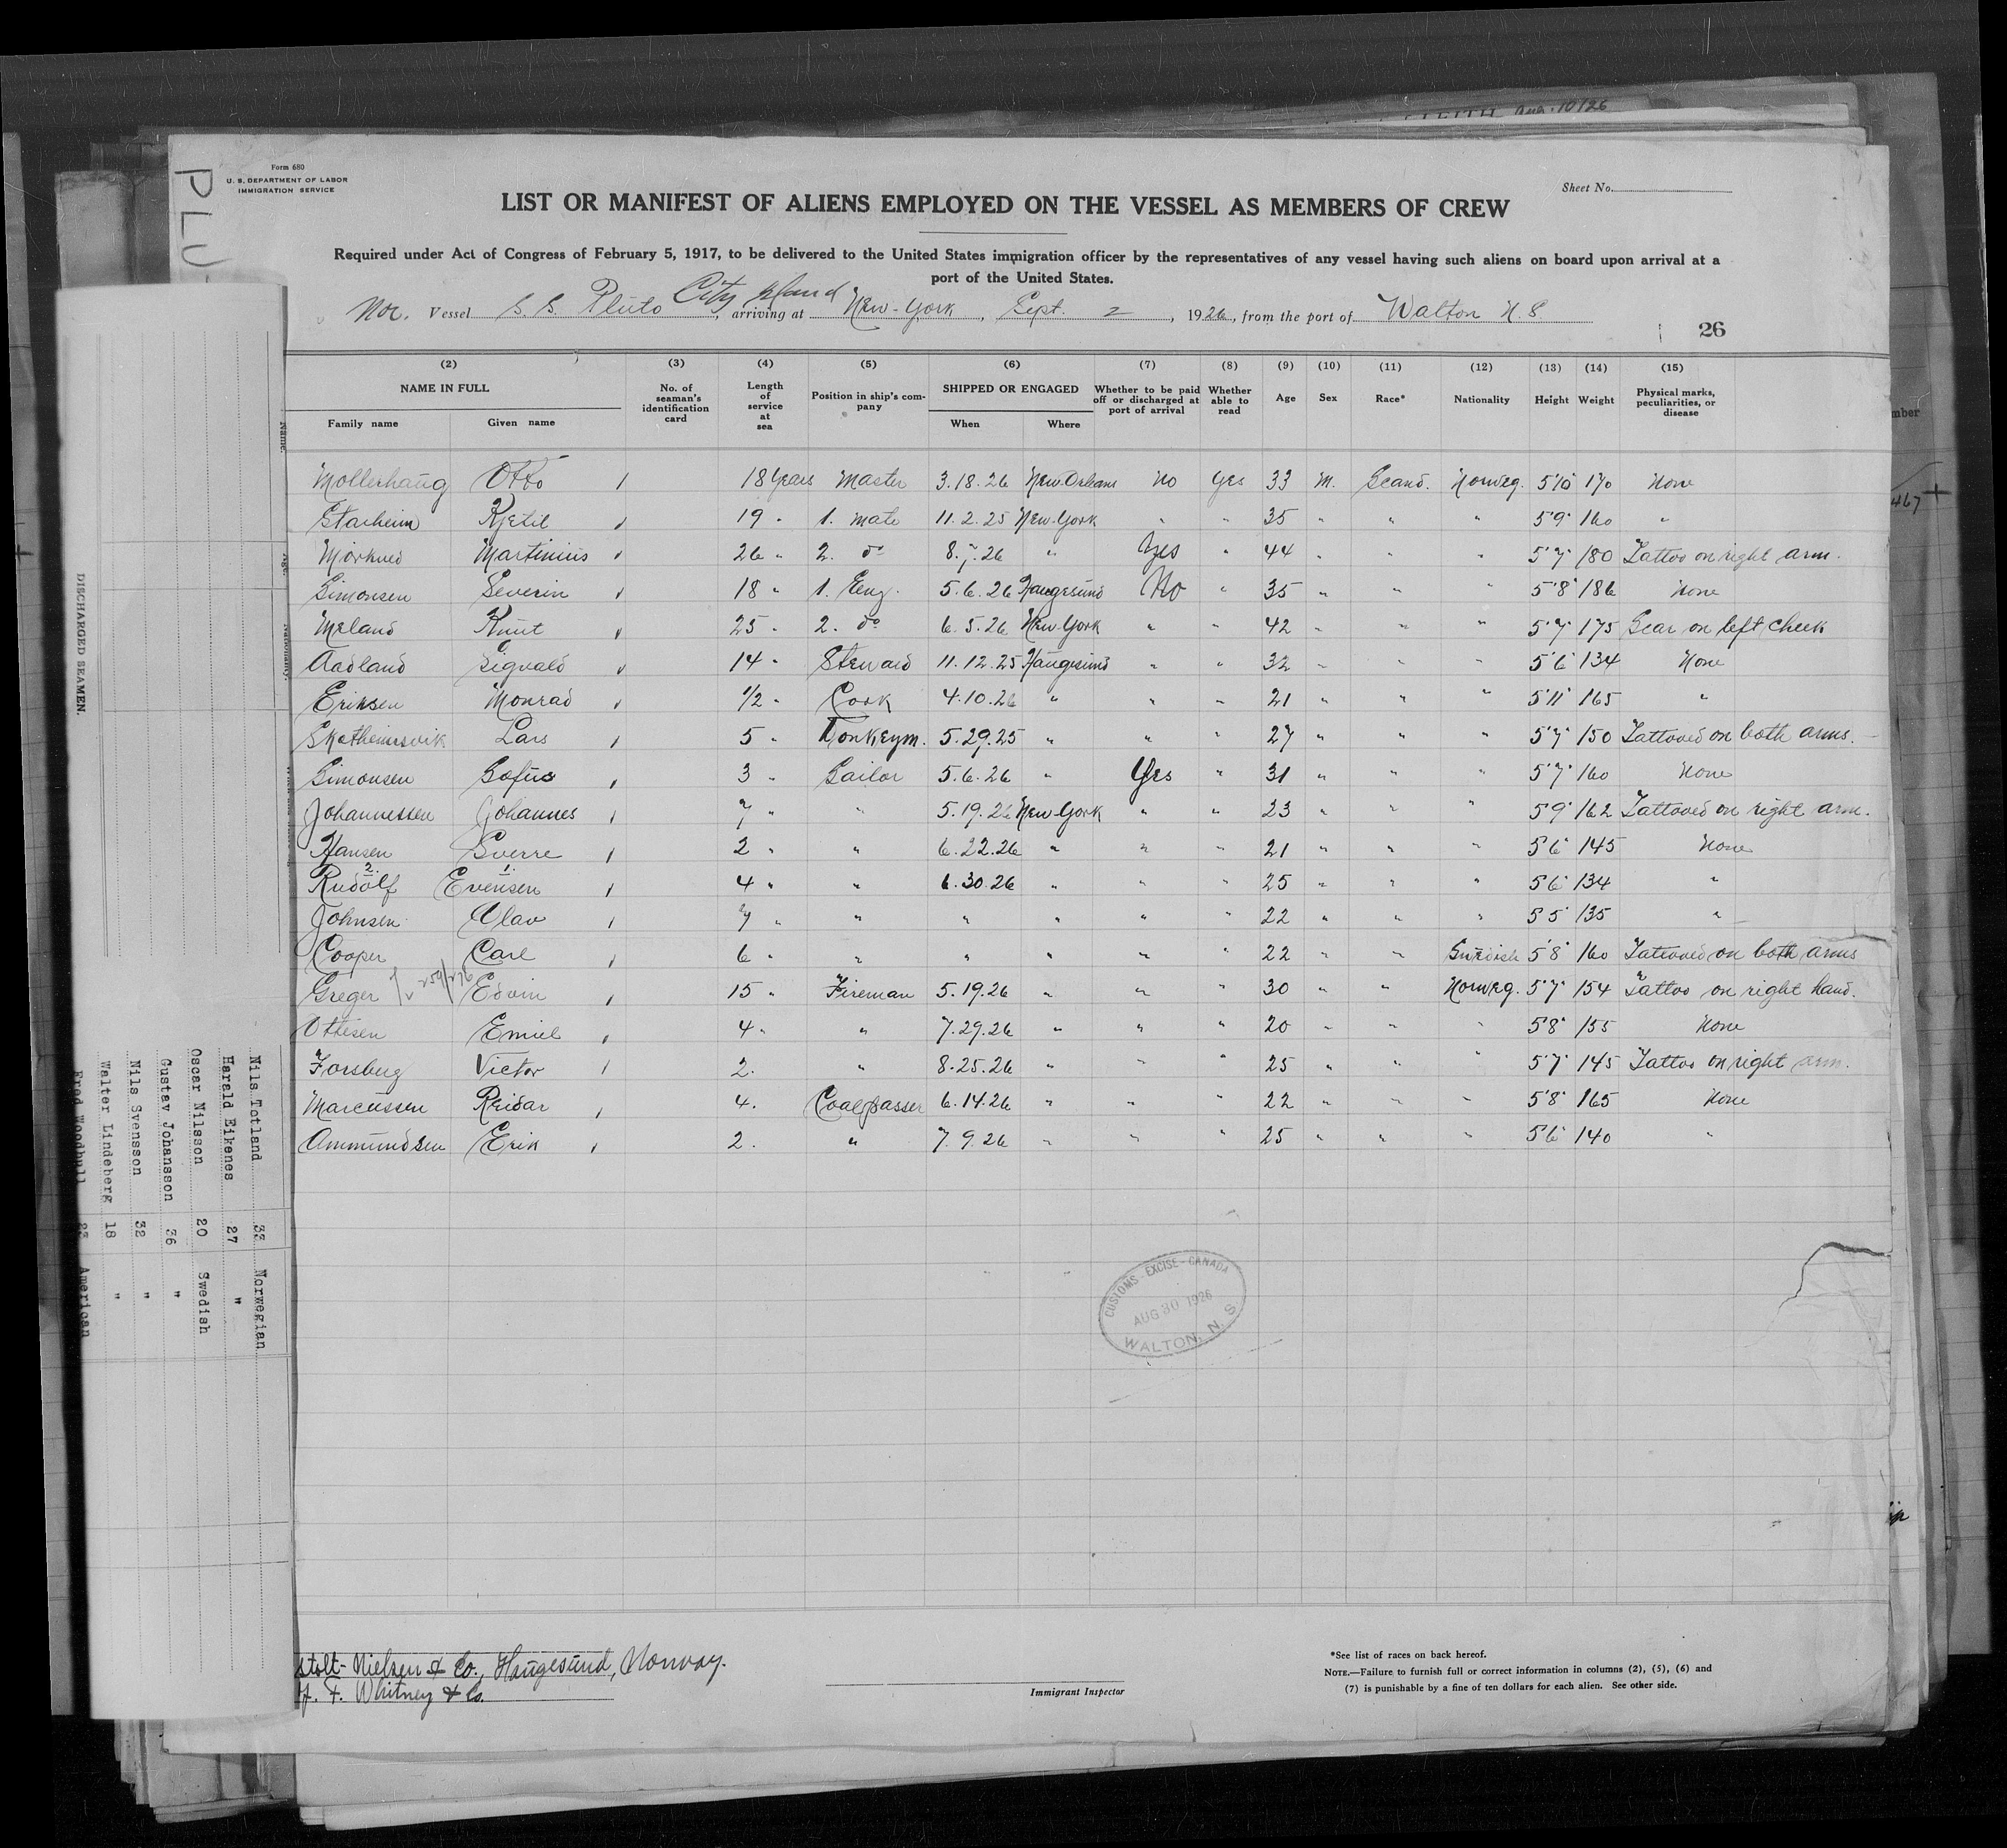 Aug. 10/26
PLU
Form 680
U. S. DEPARTMENT OF LABOR
IMMIGRATION SERVICE
Sheet No.
LIST OR MANIFEST OF ALIENS EMPLOYED ON THE VESSEL AS MEMBERS OF CREW
Required under Act of Congress of February 5, 1917, to be delivered to the United States immigration officer by the representatives of any vessel having such aliens on board upon arrival at a
port of the United States.
City Island
Nor. Vessel S. S. Pluto, arriving at New-York, Sept. 2, 1926, from the port of Walton N.S.
26
(2) (3) (4) (5) (6) (7) (8) (9) (10) (11) (12) (13) (14) (15)
NAME IN FULL No. of seaman's identification card Length of service at sea Position in ship's company SHIPPED OR ENGAGED Whether to be paid off or discharged at port of arrival Whether able to read Age Sex Race* Nationality Height Weight Physical marks, peculiarities, or disease
Family name Given name When Where
Mollerhaug Otto 18 Years Master 3.18.26 New Orleans No Yes 33 M. Scand. Norweg. 5'10" 170 None
Starheim Kjetil 19 " 1. mate 11.2.25 New-York " " 35 " " " 5'9" 160 "
Morkved Martinius 26 " 2. do 8.7.26 " Yes " 44 " " " 5'7" 180 Tattoo on right arm.
Simonsen Severin 18 " 1. Eng. 5.6.26 Haugesund No " 35 " " " 5'8" 186 None
Meland Knut 25 " 2. do 6.5.26 New-York " " 42 " " " 5'7" 175 Scar on left cheek
Aadland Sigvald 14 " Steward 11.12.25 Haugesund " " 32 " " " 5'6" 134 None
Eriksen Monrad 1/2 " Cook 4.10.26 " " " 21 " " " 5'11" 165 "
Lars 5 " Donkeym. 5.29.25 " " " 27 " " " 5'7" 150 Tattoved on both arms.
Simonsen Sofus 3 " Sailor 5.6.26 " Yes " 31 " " " 5'7" 160 None
Johannessen Johannes 7 " " 5.19.26 New-York " " 23 " " " 5'9" 162 Tattoved on right arm.
Hansen Sverre 2 " " 6.22.26 " " " 21 " " " 5'6" 145 None
2. 1.
Rudolf Evensen 4 " " 6.30.26 " " " 25 " " " 5'6" 134 "
Johnsen Olav 7 " " " " " " 22 " " " 5'5" 135 "
Cooper Carl 6 " " " " " " 22 " " Swedish 5'8" 160 Tattoved on both arms
Greger Edvin 15 " Fireman 5.19.26 " " " 30 " " Norweg. 5'7" 154 Tattoo on right hand.
Ottisen Emiel 4 " " 7.29.26 " " " 20 " " " 5'8" 155 None
Forsberg Victor 2. " 8.25.26 " " " 25 " " " 5'7" 145 Tattoo on right arm.
Marcussen Reidar 4. Coalpasser 6.14.26 " " " 22 " " " 5'8" 165 None
Ammundsen Erik 2. " 7.9.26 " " " 25 " " " 5'6" 140 "
CUSTOMS - EXCISE - CANADA
AUG 30 1926
WALTON, N. S.
Stolt-Nielsen & Co., Haugesund, Norway.
F. Whitney & Co.
Immigrant Inspector
*See list of races on back hereof.
NOTE.—Failure to furnish full or correct information in columns (2), (5), (6) and
(7) is punishable by a fine of ten dollars for each alien. See other side.
DISCHARGED SEAMEN.
Name.
Age.
Nils Totland 33 Norwegian
Harald Eikenes 27 "
Oscar Nilsson 20 Swedish
Gustav Johansson 36 "
Nils Svensson 32 "
Walter Lindeberg 18 "
Fred Woodhull 23 American
mber
467